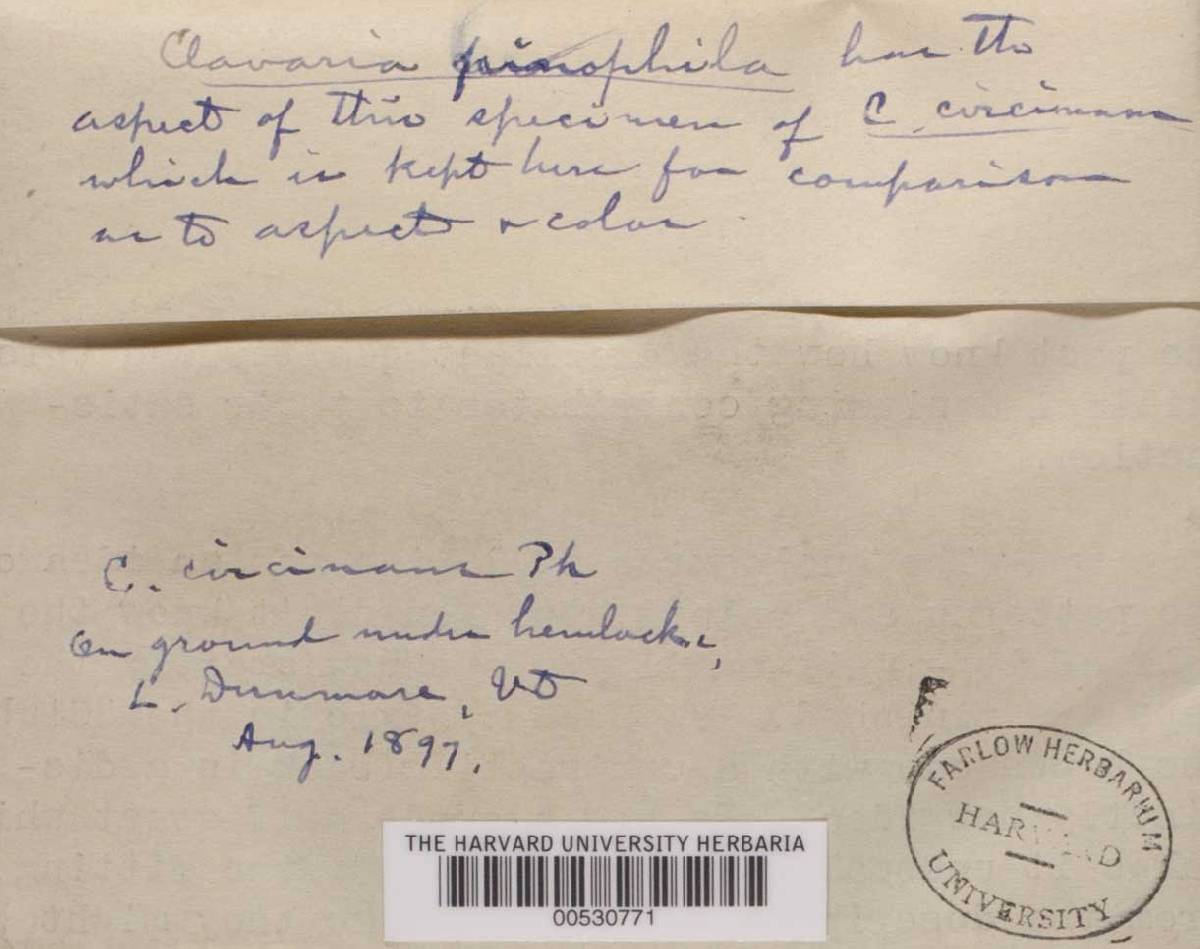 Clavaria pinophila has the
aspect of this specimen of C. circinans
which is kept here for comparison
as to aspect & color.
C. circinans Pk
on ground under hemlocks,
L. Dunmore, Vt
Aug. 1897.
FARLOW HERBARIUM
HARVARD
UNIVERSITY
THE HARVARD UNIVERSITY HERBARIA
00530771